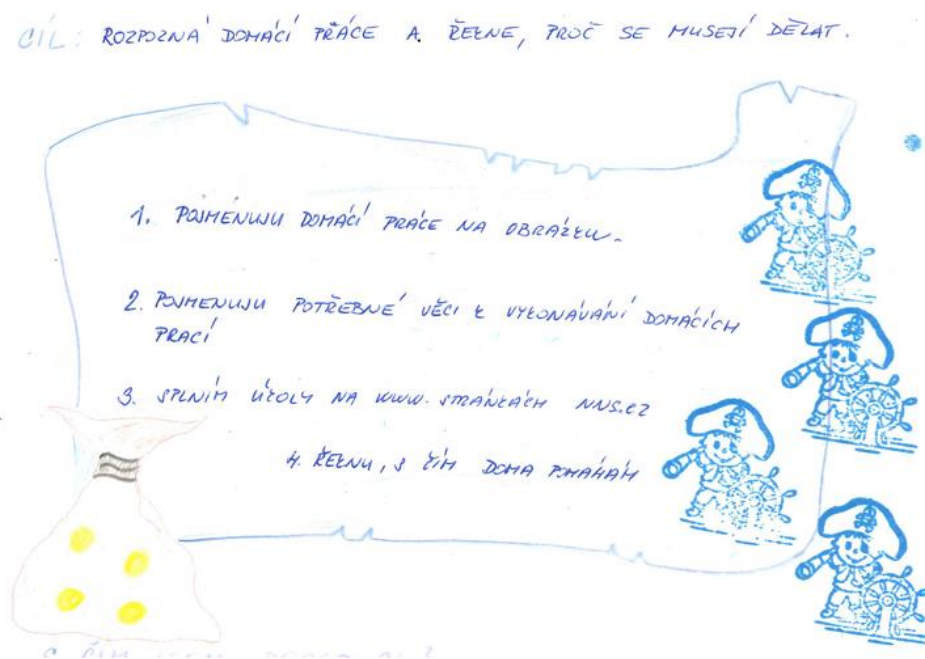 CÍL: ROZPOZNÁ DOMÁCÍ PRÁCE A ŘEKNE, PROČ SE MUSEJÍ DĚLAT.
1. POJMENUJU DOMÁCÍ PRÁCE NA OBRÁZKU.
2. POJMENUJU POTŘEBNÉ VĚCI K VYKONÁVÁNÍ DOMÁCÍCH
PRACÍ
3. SPLNÍM ÚKOLY NA WWW. STRÁNKÁCH NNS.CZ
4. ŘEKNU, S ČÍM DOMA POMÁHÁM
S ČÍM JSEM